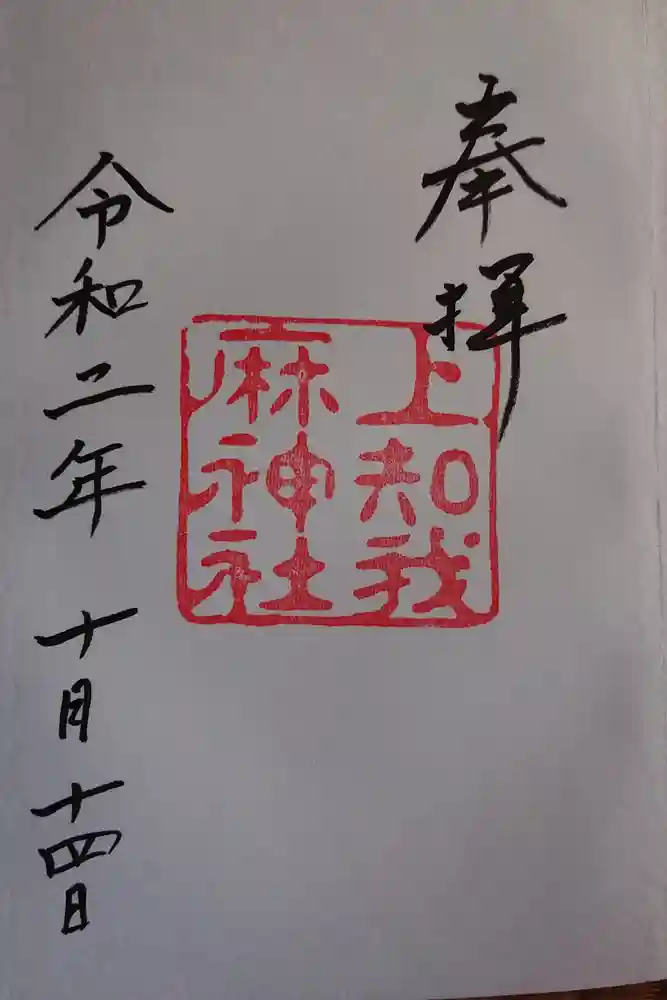 奉拝
上知我
麻神社
令和二年 十月十四日